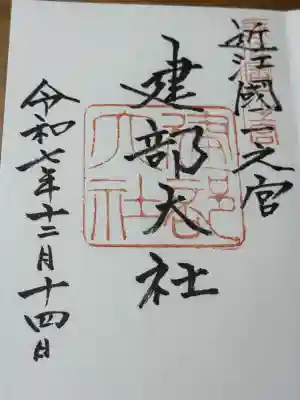 近江國一之宮
建部大社
令和七年十二月十四日
建部大社